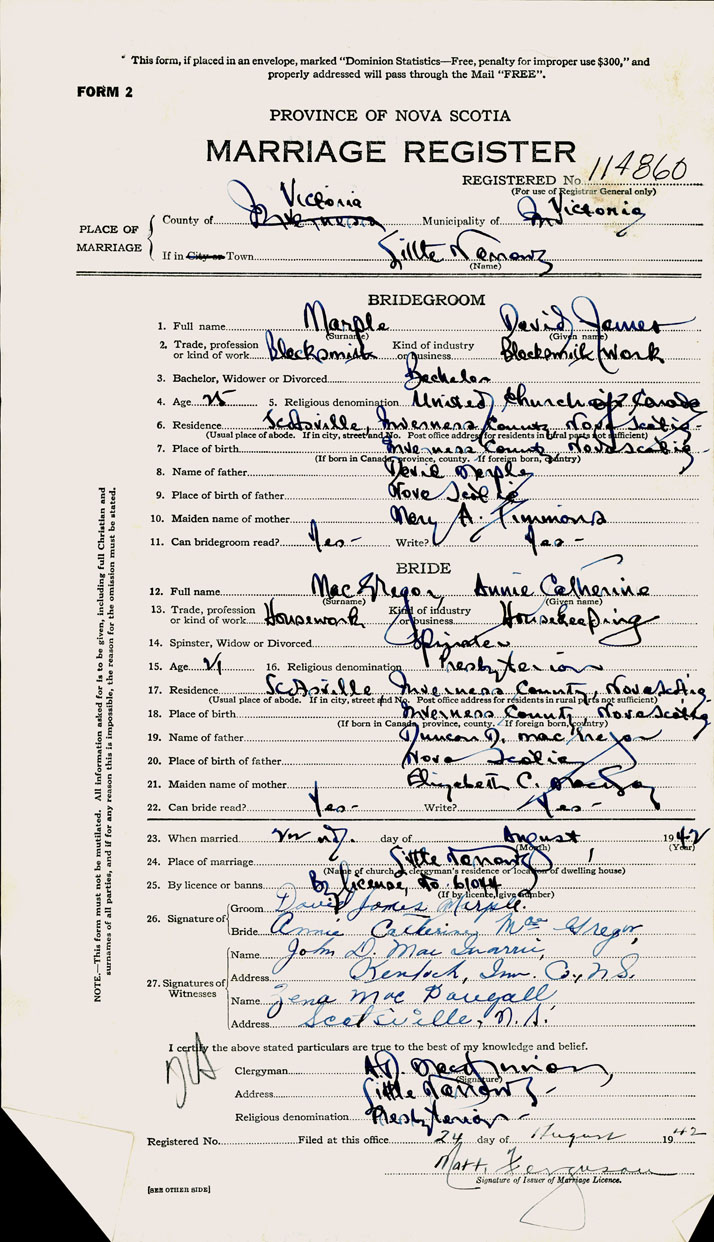 " This form, if placed in an envelope, marked “Dominion Statistics—Free, penalty for improper use $300,” and
properly addressed will pass through the Mail “FREE”.
FORM 2
PROVINCE OF NOVA SCOTIA
MARRIAGE REGISTER
REGISTERED No. 114860
(For use of Registrar General only)
PLACE OF MARRIAGE
County of Victoria Inverness Municipality of Victoria
If in City or Town Little Narrows
(Name)
BRIDEGROOM
1. Full name Marple David James
(Surname) (Given name)
2. Trade, profession or kind of work Blacksmith Kind of industry or business Blacksmith Work
3. Bachelor, Widower or Divorced Bachelor
4. Age 25 5. Religious denomination United Church of Canada
6. Residence Scotsville, Inverness County, Nova Scotia
(Usual place of abode. If in city, street and No. Post office address for residents in rural parts not sufficient)
7. Place of birth Inverness County, Nova Scotia
(If born in Canada, province, county. If foreign born, country)
8. Name of father David Marple
9. Place of birth of father Nova Scotia
10. Maiden name of mother Mary A. Timmons
11. Can bridegroom read? Yes- Write? Yes-
BRIDE
12. Full name MacGregor, Annie Catherine
(Surname) (Given name)
13. Trade, profession or kind of work Housework Kind of industry or business Housekeeping
14. Spinster, Widow or Divorced Spinster
15. Age 21 16. Religious denomination Presbyterian
17. Residence Scotsville Inverness County, Nova Scotia
(Usual place of abode. If in city, street and No. Post office address for residents in rural parts not sufficient)
18. Place of birth Inverness County, Nova Scotia
(If born in Canada, province, county. If foreign born, country)
19. Name of father Duncan D. MacGregor
20. Place of birth of father Nova Scotia
21. Maiden name of mother Elizabeth C.
22. Can bride read? Yes- Write? Yes-
23. When married 22nd. day of August 1942
(Month) (Year)
24. Place of marriage Little Narrows
(Name of church, clergyman's residence or location of dwelling house)
25. By licence or banns By license, No 61044
(If by licence, give number)
26. Signature of
Groom David James Marple.
Bride Annie Catherine MacGregor
27. Signatures of Witnesses
Name John D. Mac
Address Kenloch, Inv. Co., N.S.
Name Zena MacDougall
Address Scotsville, N.S.
I certify the above stated particulars are true to the best of my knowledge and belief.
Clergyman A.D. MacKinnon,
(Signature)
Address Little Narrows-
Religious denomination Presbyterian-
Registered No. Filed at this office 24 day of August 1942
Matt. Ferguson
Signature of Issuer of Marriage Licence.
[SEE OTHER SIDE]
NOTE.—This form must not be mutilated. All information asked for is to be given, including full Christian and
surnames of all parties, and if for any reason this is impossible, the reason for the omission must be stated.